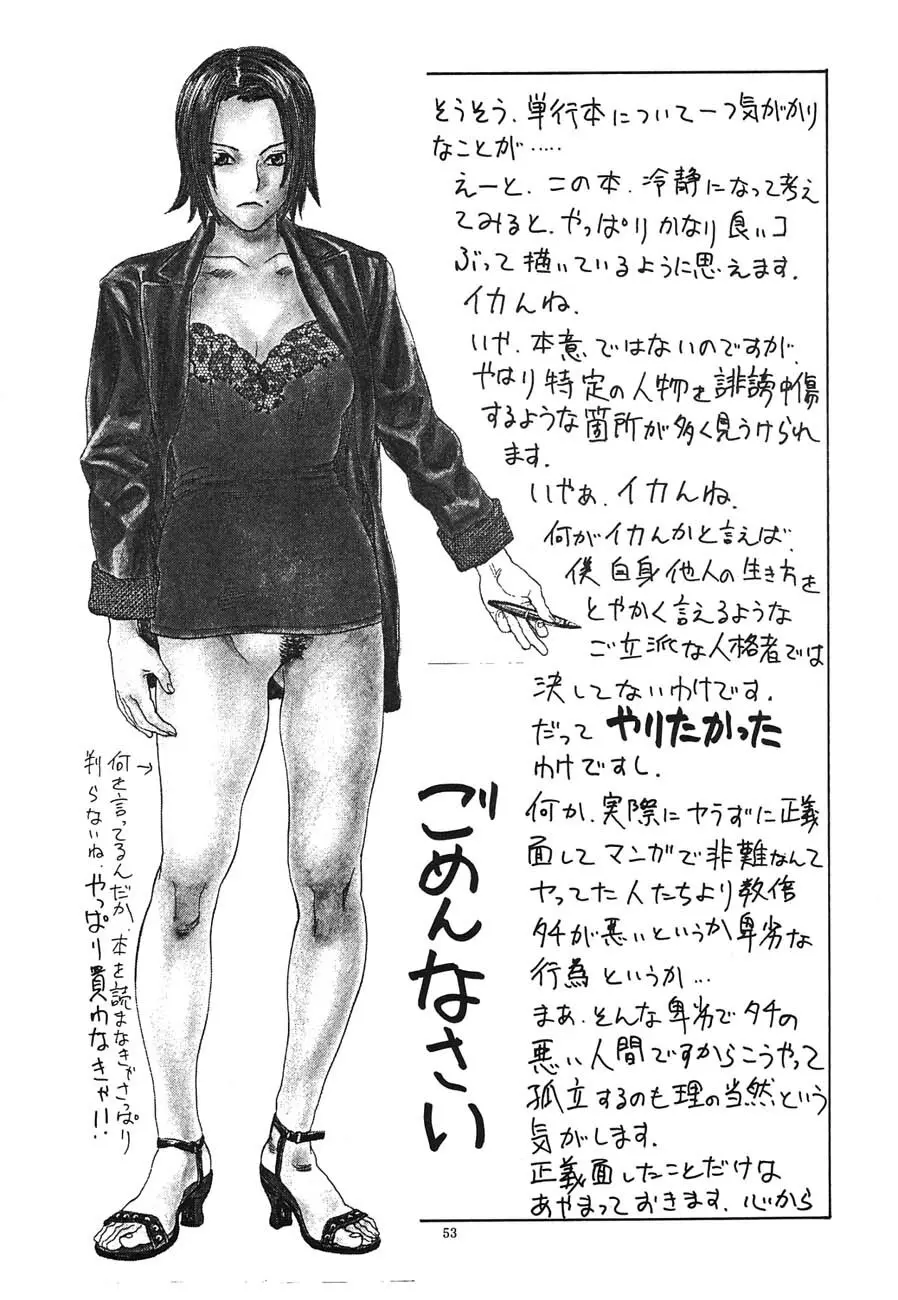 そうそう、単行本について一つ気がかり
なことが‥‥‥
えーと、この本、冷静になって考え
てみると、やっぱりかなり良いコ
ぶって描いているように思えます。
イカんね。
いや、本意ではないのですが、
やはり特定の人物を誹謗中傷
するような箇所が多く見うけられ
ます。
いやぁ、イカんね。
何がイカんかと言えば、
僕自身他人の生き方を
とやかく言えるような
ご立派な人格者では
決してないわけです。
だってやりたかった
わけですし。
何か、実際にヤらずに正義
面してマンガで非難なんて
ヤってた人たちより数倍
タチが悪いというか卑劣な
行為というか…
まあ、そんな卑劣でタチの
悪い人間ですからこうやって
孤立するのも理の当然という
気がします。
正義面したことだけは
あやまっておきます、心から
ごめんなさい
↑
何を言ってるんだか、本を読まなきゃさっぱり
判らないね、やっぱり買わなきゃ!!
53